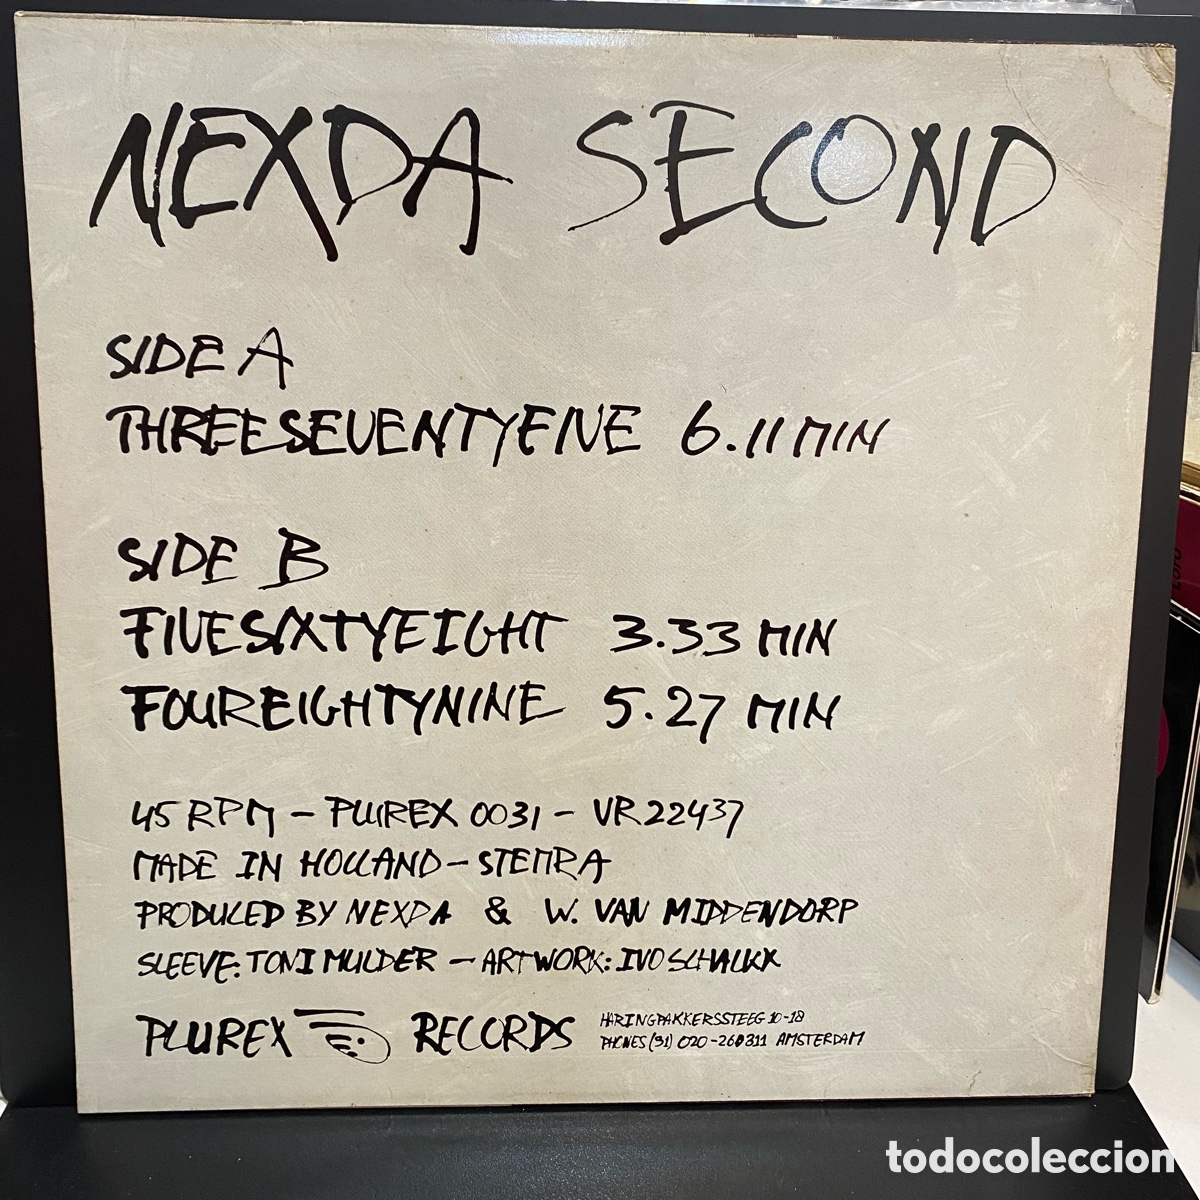 NEXDA SECOND
SIDE A
THREESEVENTYFIVE 6.11 MIN
SIDE B
FIVESIXTYEIGHT 3.33 MIN
FOUREIGHTYNINE 5.27 MIN
45 RPM - PLUREX 0031 - VR 22437
MADE IN HOLLAND - STEMRA
PRODUCED BY NEXDA & W. VAN MIDDENDORP
SLEEVE: TONI MULDER - ARTWORK: IVO SCHALKX
PLUREX RECORDS
HARINGPAKKERSSTEEG 10-18
PHONES (31) 020-260311 AMSTERDAM
todocoleccion